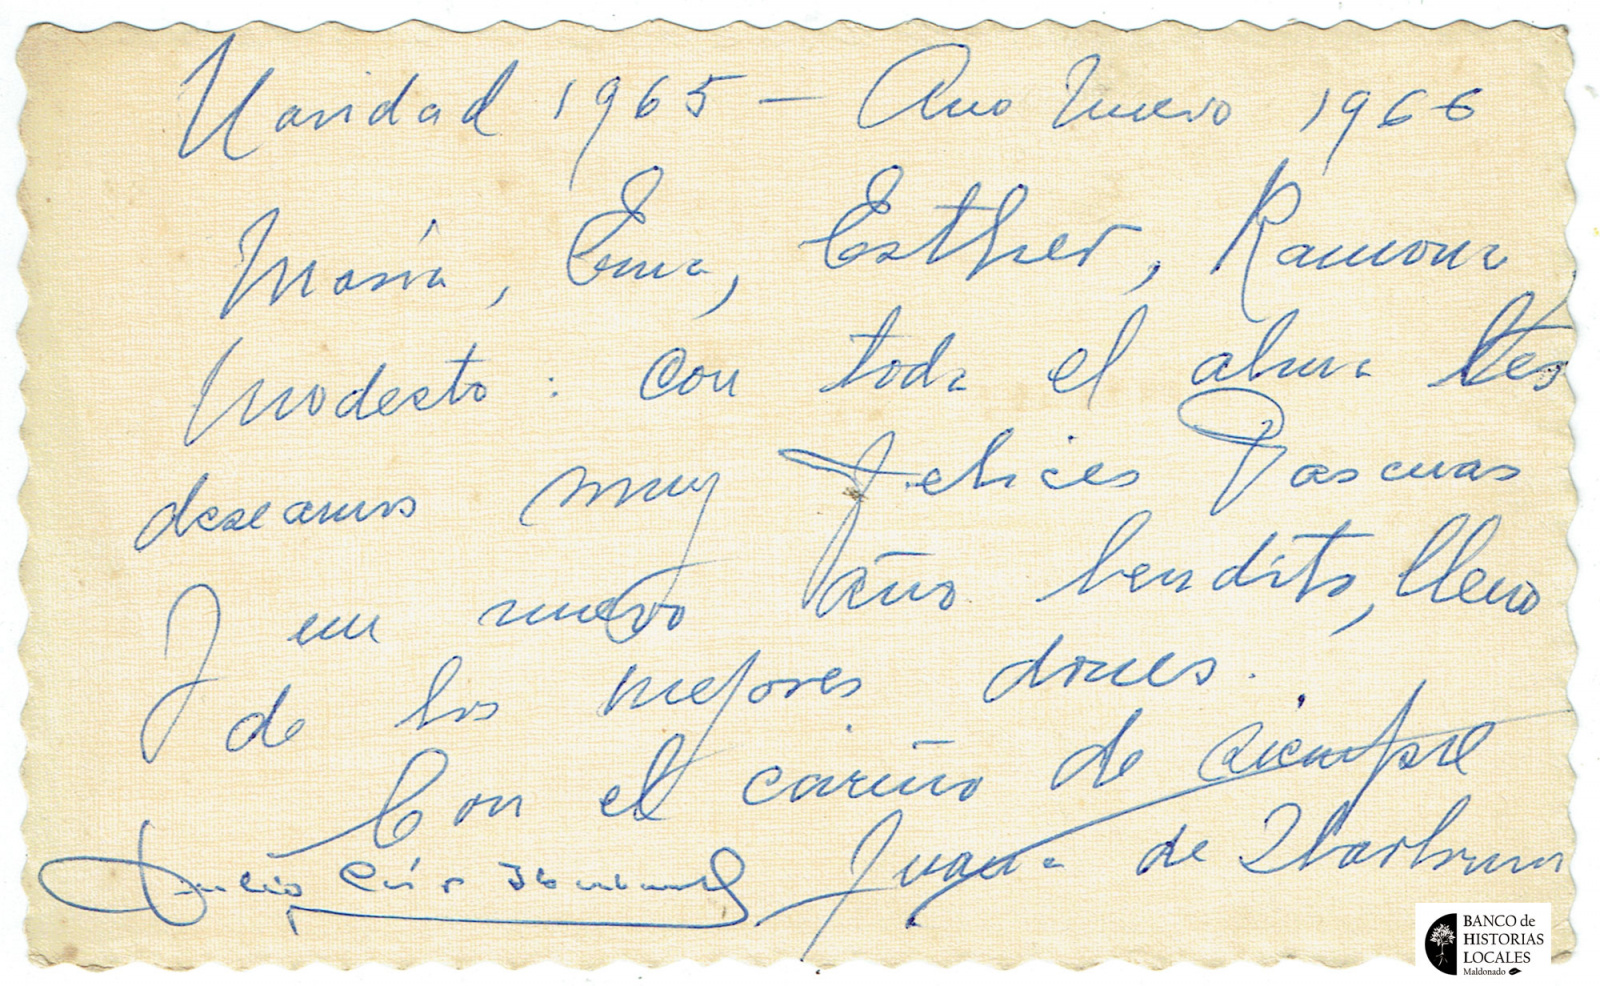 Navidad 1965 – Año Nuevo 1966
María, Ema, Esther, Ramona
Modesto: Con toda el alma les
deseamos muy felices Pascuas
y un nuevo año bendito, lleno
de los mejores dones.
Con el cariño de siempre
Juana de Ibarbourou
Julio César Ibarbourou
BANCO de
HISTORIAS
LOCALES
Maldonado